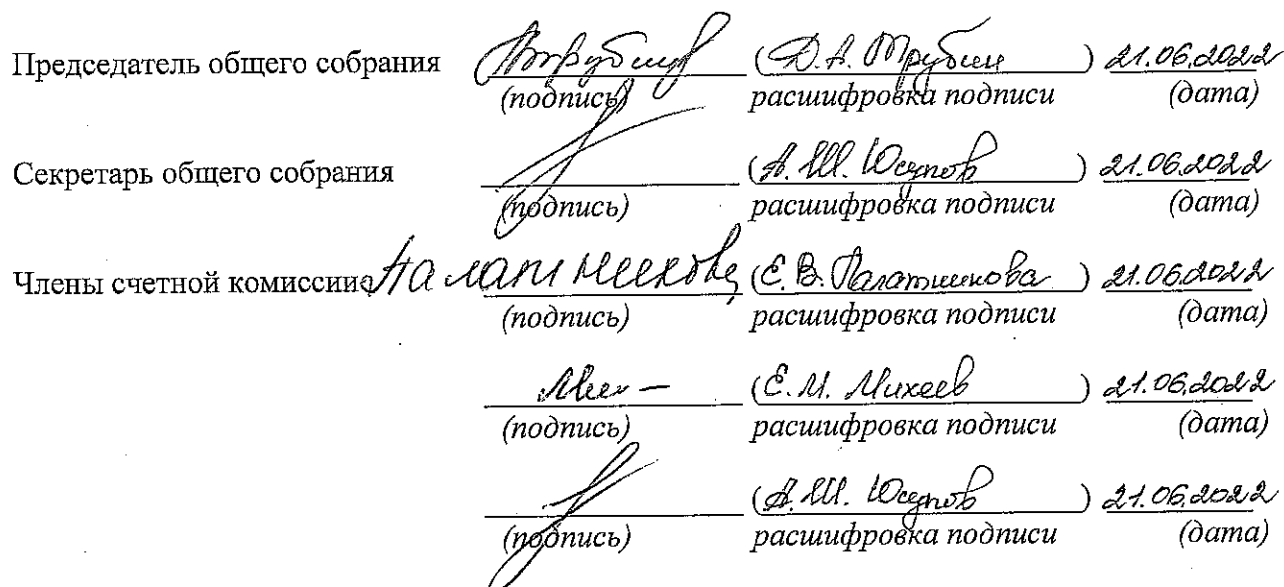 Председатель общего собрания Трубин (Д.А. Трубин) 21.06.2022
(подпись) расшифровка подписи (дата)
Секретарь общего собрания (А.Ш. Юсупов) 21.06.2022
(подпись) расшифровка подписи (дата)
Члены счетной комиссии Палатникова (Е.В. Палатникова) 21.06.2022
(подпись) расшифровка подписи (дата)
(Е.М. Михеев) 21.06.2022
(подпись) расшифровка подписи (дата)
(А.Ш. Юсупов) 21.06.2022
(подпись) расшифровка подписи (дата)